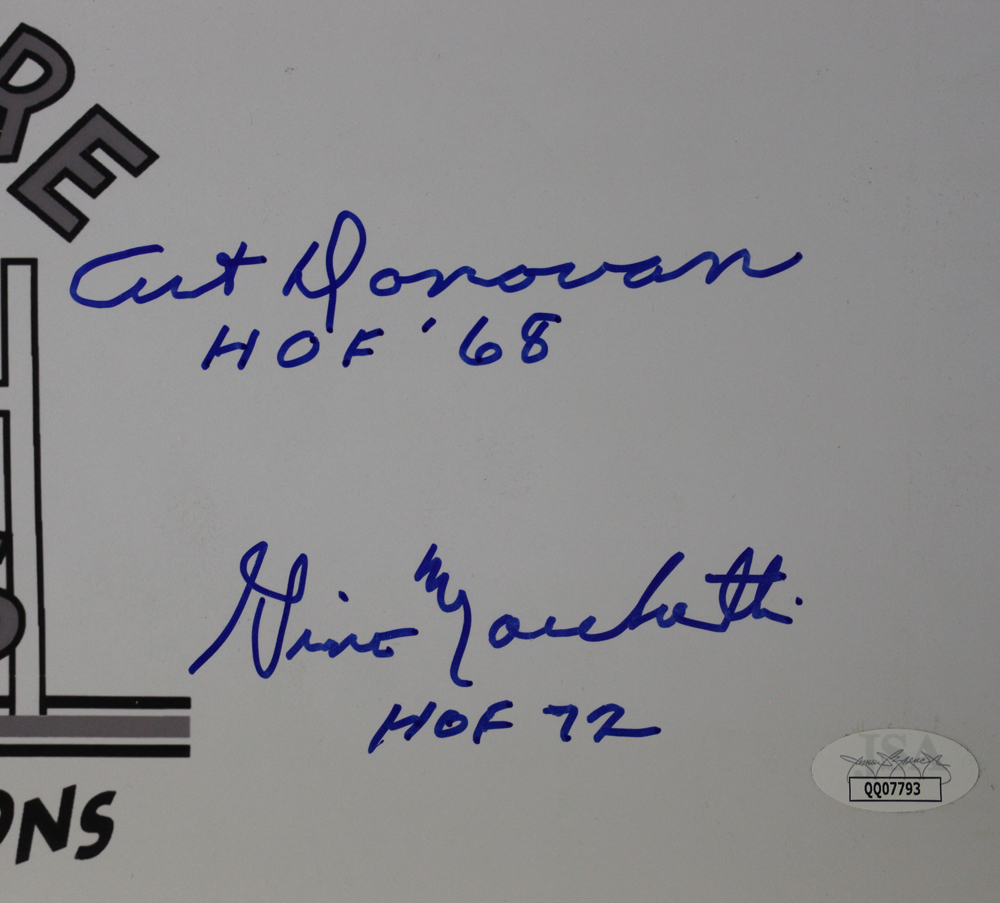 RE
Art Donovan
HOF '68
Gino Marchetti
HOF 72
JSA
QQ07793
ONS